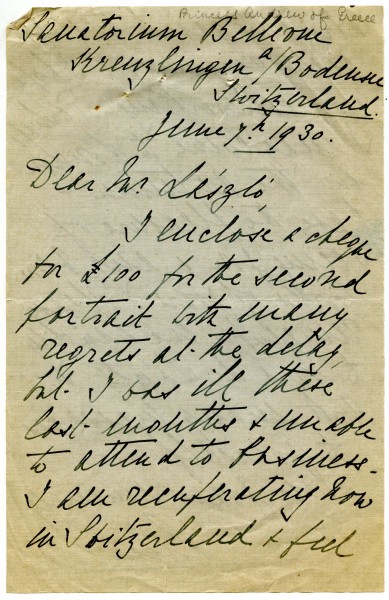 Princess Andrew of Greece
Sanatorium Bellevue
Kreuzlingen a/Bodensee
Switzerland.
June 7th 1930.
Dear Mr László,
I enclose a cheque
for £100 for the second
portrait with many
regrets at the delay,
but I was ill these
last months & unable
to attend to business.
I am recuperating now
in Switzerland & feel